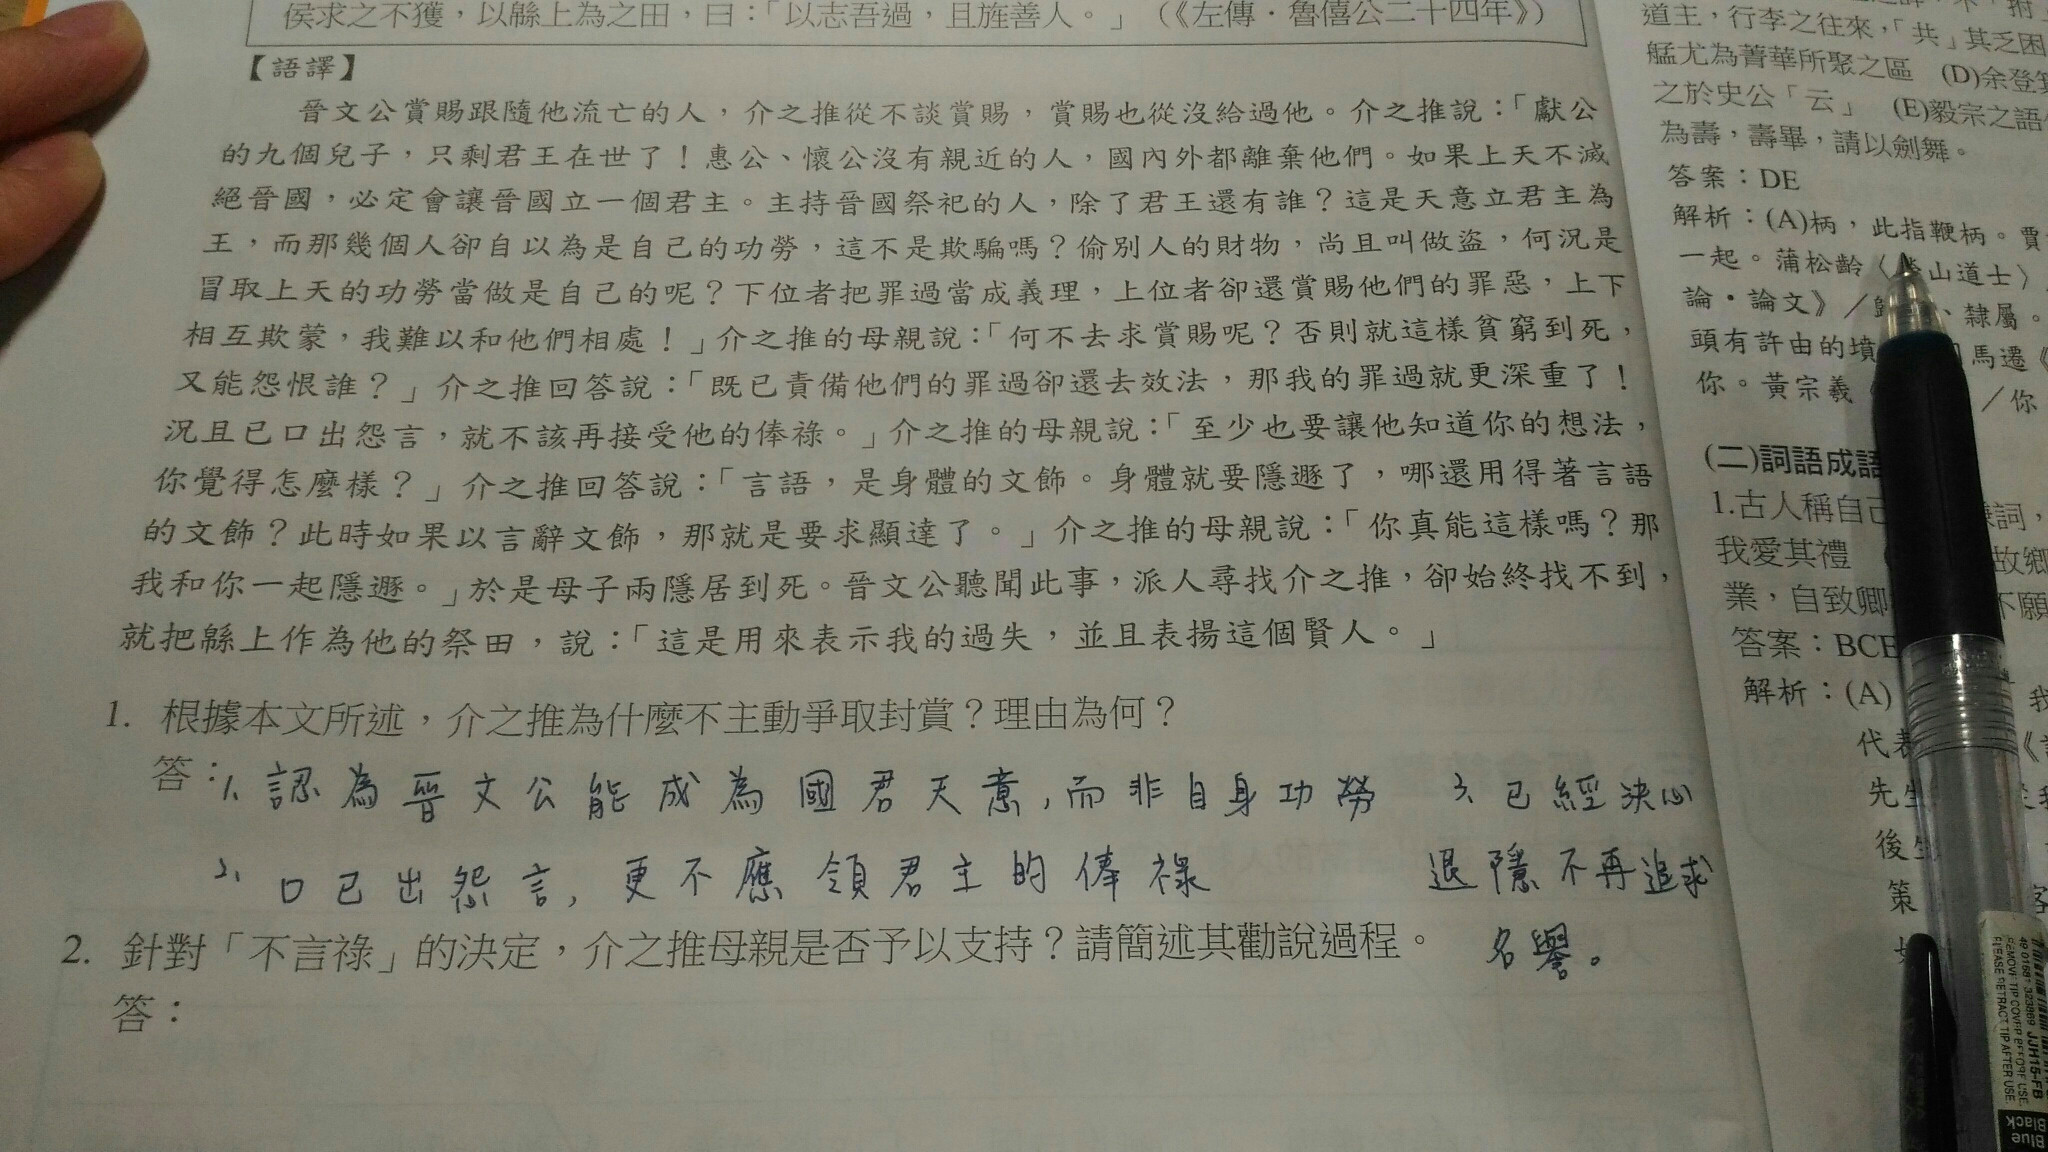 侯求之不獲，以緜上為之田，曰：「以志吾過，且旌善人。」（《左傳．魯僖公二十四年》）
【語譯】
晉文公賞賜跟隨他流亡的人，介之推從不談賞賜，賞賜也從沒給過他。介之推說：「獻公
的九個兒子，只剩君王在世了！惠公、懷公沒有親近的人，國內外都離棄他們。如果上天不滅
絕晉國，必定會讓晉國立一個君主。主持晉國祭祀的人，除了君王還有誰？這是天意立君主為
王，而那幾個人卻自以為是自己的功勞，這不是欺騙嗎？偷別人的財物，尚且叫做盜，何況是
冒取上天的功勞當做是自己的呢？下位者把罪過當成義理，上位者卻還賞賜他們的罪惡，上下
相互欺蒙，我難以和他們相處！」介之推的母親說：「何不去求賞賜呢？否則就這樣貧窮到死，
又能怨恨誰？」介之推回答說：「既已責備他們的罪過卻還去效法，那我的罪過就更深重了！
況且已口出怨言，就不該再接受他的俸祿。」介之推的母親說：「至少也要讓他知道你的想法，
你覺得怎麼樣？」介之推回答說：「言語，是身體的文飾。身體就要隱遯了，哪還用得著言語
的文飾？此時如果以言辭文飾，那就是要求顯達了。」介之推的母親說：「你真能這樣嗎？那
我和你一起隱遯。」於是母子兩隱居到死。晉文公聽聞此事，派人尋找介之推，卻始終找不到，
就把緜上作為他的祭田，說：「這是用來表示我的過失，並且表揚這個賢人。」
1. 根據本文所述，介之推為什麼不主動爭取封賞？理由為何？
答：1、認為晉文公能成為國君天意，而非自身功勞
2、口已出怨言，更不應領君主的俸祿
3、已經決心
退隱不再追求
名譽。
2. 針對「不言祿」的決定，介之推母親是否予以支持？請簡述其勸說過程。
答：
道主，行李之往來，「共」其乏困
艋尤為菁華所聚之區 (D)余登
之於史公「云」 (E)毅宗之語
為壽，壽畢，請以劍舞。
答案：DE
解析：(A)柄，此指鞭柄。賈
一起。蒲松齡 山道士〉
論‧論文》／ 、隸屬。
頭有許由的墳 馬遷《
你。黃宗羲 ／你
(二)詞語成語
1.古人稱自己 詞，
我愛其禮 故鄉
業，自致卿 不願
答案：BCE
解析：(A) 我
代表 《
先生
後生
策 客
REMOVE TIP COVER BEFORE USE.
PLEASE RETRACT TIP AFTER USE.
JJH15-FB
Blue
Black